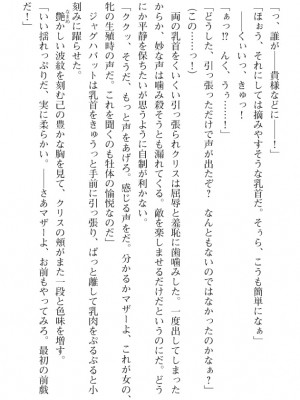 「っ、誰が――貴様などに――！」
「ほぉう、それにしては摘みやすそうな乳首だ。そぅら、こうも簡単になぁ」
「――くぃいっ、きゅ！
「ぁっ!?　んく、うぅ……！」
「どうした、引っ張っただけで声が出たぞ？　なんともないのではなかったのか？」
（この……っ！）
　両の乳首をくいくい引っ張られクリスは屈辱と羞恥に歯噛みした。一度出してしまった
からか、妙な声は噛み殺そうとも漏れてくる。敵を楽しませるだけだというのに。だという
のに平静を保ちたいが思うように自制が利かない。
「ククッ、そうだ、もっと声をあげろ。感じる声をだ。分かるかマザーよ、これが女の、
牝の生殖時の声だ。これを聞くのも牡体の愉悦なのだ」
　ジャグハバットは乳首をきゅうっと手前に引っ張り、ぱっと離して乳肉をぷるぷると小
刻みに躍らせた。
　艶かしい波紋を刻む己の豊かな胸を見て、クリスの頬がまた一段と色味を増す。
「いい揺れっぷりだ、実に柔らかい。――さあマザーよ、お前もやってみろ。最初の前戯
だ！」